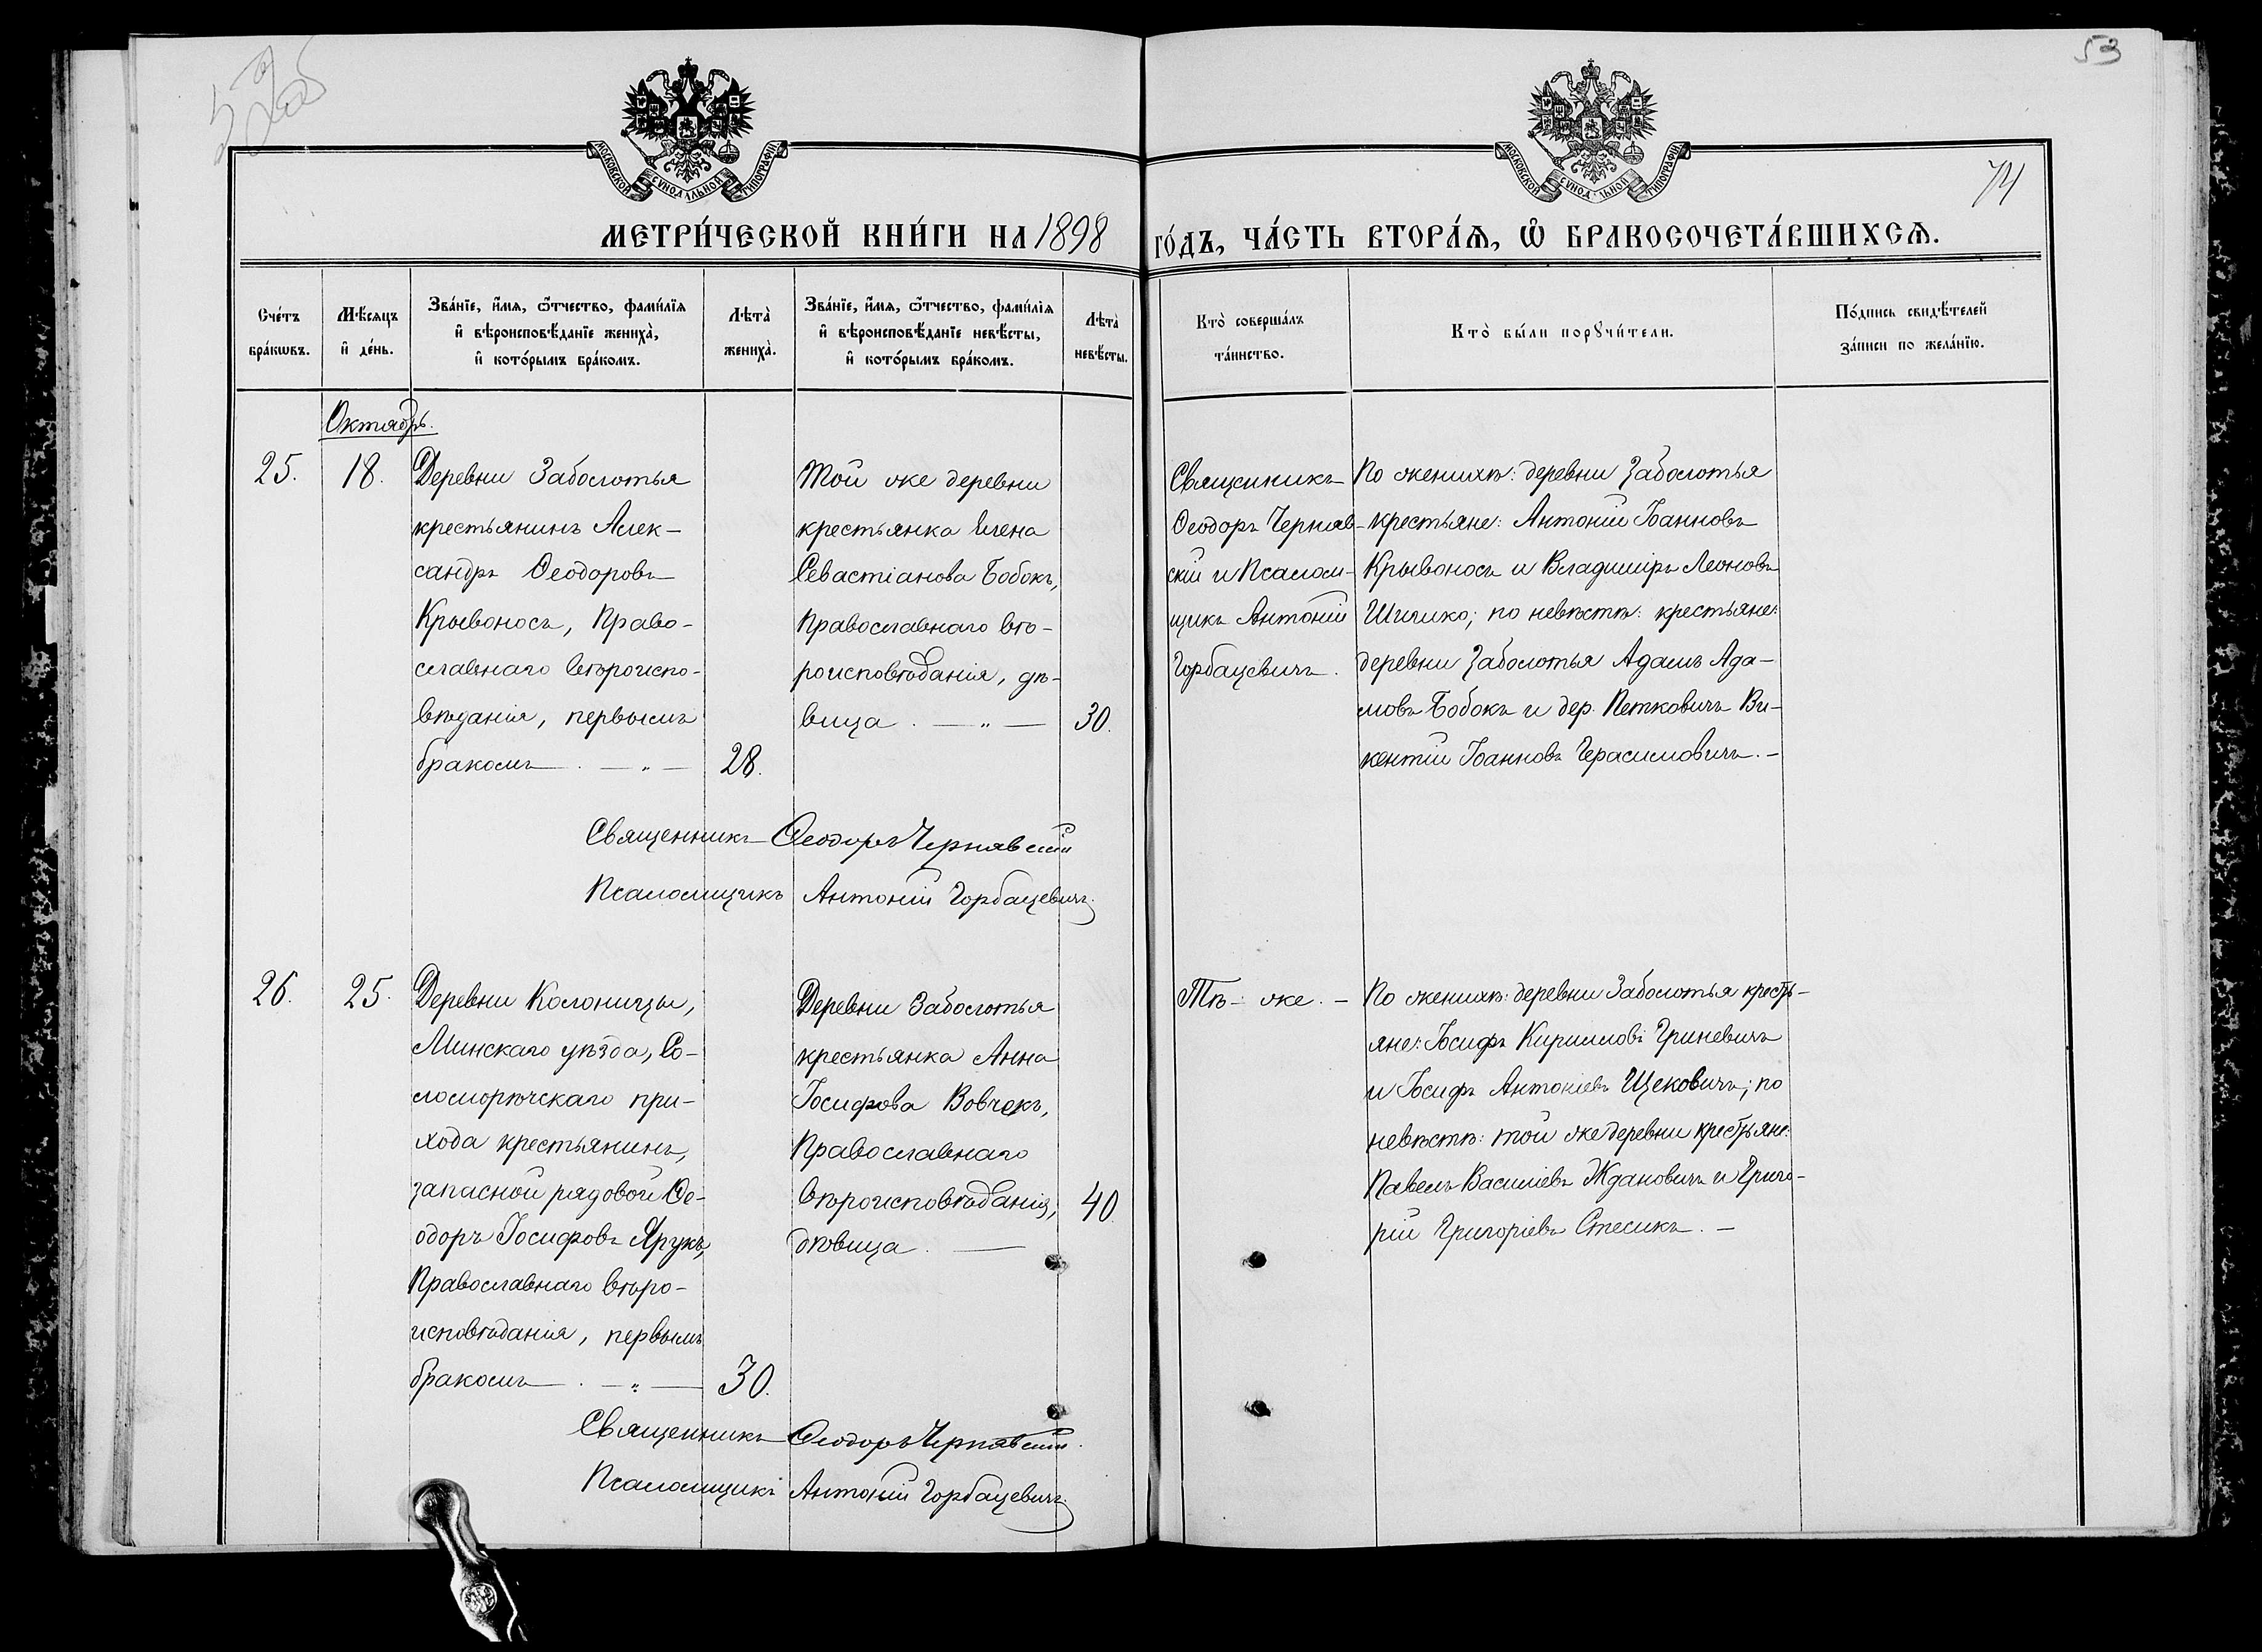 53
74
МОСКОВСКОЙ СѴНОДАЛЬНОЙ ТИПОГРАФІИ
МОСКОВСКОЙ СѴНОДАЛЬНОЙ ТИПОГРАФІИ
МЕТРИ́ЧЕСКОЙ КНИ́ГИ НА 1898 ГО́ДЪ, ЧА́СТЬ ВТОРА́Ѧ, Ѽ БРАКОСОЧЕТА́ВШИХСѦ.
Сче́тъ
бра́кѡвъ.
Мѣ́сяцъ
и҆ де́нь.
Зва́нїе, и҆́мя, ѻ҆́тчество, фами́лїя
и҆ вѣроисповѣ́данїе жениха̀,
и҆ кото́рымъ бра́комъ.
Лѣта̀
жениха̀.
Зва́нїе, и҆́мя, ѻ҆́тчество, фами́лїя
и҆ вѣроисповѣ́данїе невѣ́сты,
и҆ кото́рымъ бра́комъ.
Лѣта̀
невѣ́сты.
Кто̀ соверша́лъ
та́инство.
Кто̀ бы́ли порꙋчи́тели.
По́дпись свидѣ́телей
за́писи по жела́нїю.
Октябрь.
25.
18.
Деревни Заболотья
крестьянинъ Алек-
сандръ Ѳеодоровъ
Крывоносъ, Право-
славнаго вѣроиспо-
вѣданія, первымъ
бракомъ . — „ —
28.
Той же деревни
крестьянка Елена
Севастіанова Бобокъ,
Православнаго вѣ-
роисповѣданія, дѣ-
вица . — „ —
30.
Священникъ
Ѳеодоръ Черняв-
скій и Псалом-
щикъ Антоній
Горбацевичъ.
По женихѣ: деревни Заболотья
крестьяне: Антоній Іоанновъ
Крывоносъ и Владиміръ Леоновъ
Шишко; по невѣстѣ: крестьяне:
деревни Заболотья Адамъ Ада-
мовъ Бобокъ и дер. Петковичъ Ви-
кентій Іоанновъ Герасимовичъ. —
Священникъ Ѳеодоръ Чернявскій
Псаломщикъ Антоній Горбацевичъ.
26.
25.
Деревни Колоницы,
Минскаго уѣзда, Со-
ломорѣчскаго при-
хода крестьянинъ,
запасной рядовой Ѳе-
одоръ Іосифовъ Ярукъ,
Православнаго вѣро-
исповѣданія, первымъ
бракомъ . — „ —
30.
Деревни Заболотья
крестьянка Анна
Іосифова Вовчекъ,
Православнаго
вѣроисповѣданія,
дѣвица . —
40.
Тѣ-же. —
По женихѣ: деревни Заболотья кресть-
яне: Іосифъ Кирилловъ Гриневичъ
и Іосифъ Антоніевъ Щековичъ; по
невѣстѣ: той же деревни крестьяне:
Павелъ Василіевъ Ждановичъ и Григо-
рій Григоріевъ Стесикъ. —
Священникъ Ѳеодоръ Чернявскій.
Псаломщикъ Антоній Горбацевичъ.